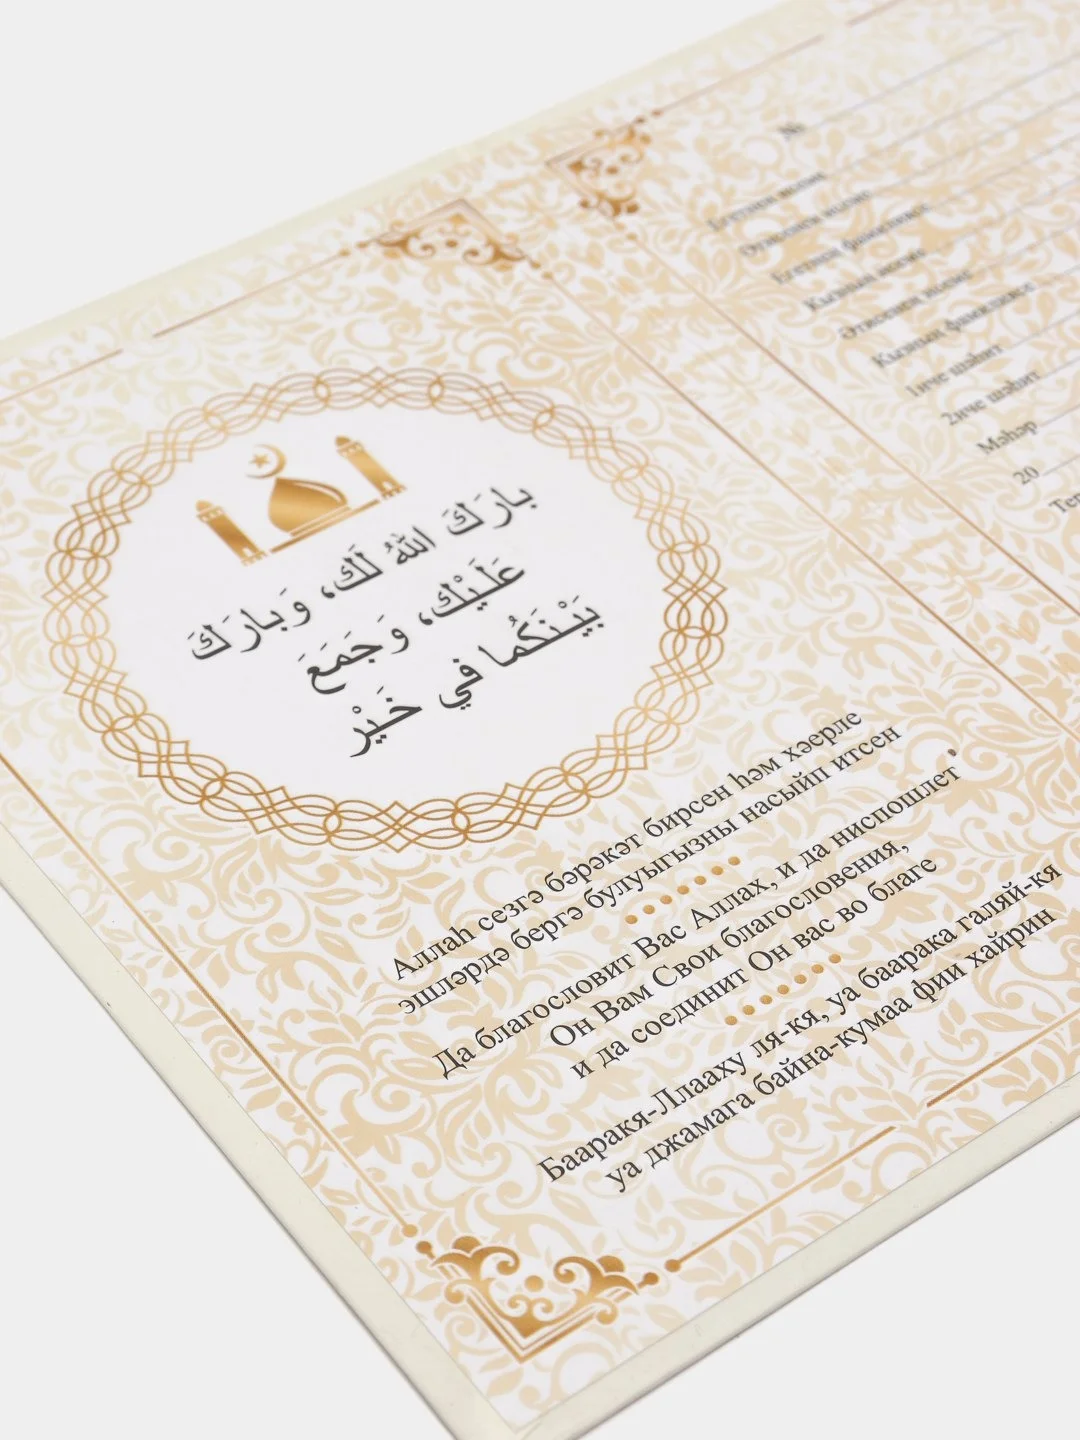 بارَكَ اللهُ لَكَ، وَبارَكَ
عَلَيْكَ، وَجَمَعَ
بَيْنَكُما في خَيْر
Аллаһ сезгә бәрәкәт бирсен һәм хәерле
эшләрдә бергә булуыгызны насыйп итсен
Да благословит Вас Аллах, и да ниспошлет
Он Вам Свои благословения,
и да соединит Он вас во благе
Бааракя-Ллааху ля-кя, уа баарака галяй-кя
уа джамага байна-кумаа фии хайрин
№
Егетнең исеме
Әтисенең исеме
Егетнең фамилиясе
Кызның исеме
Әтисенең исеме
Кызның фамилиясе
1нче шаһит
2нче шаһит
Мәһәр
20